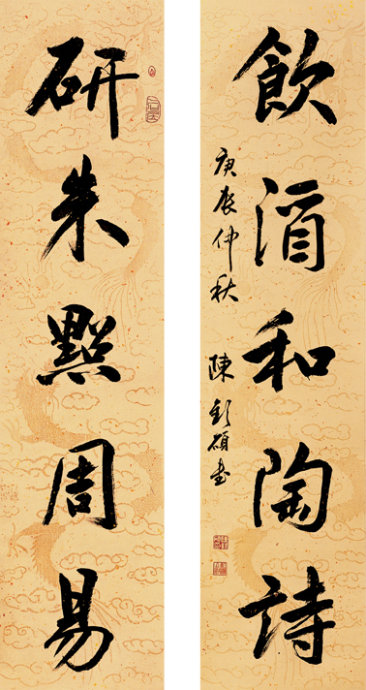 研朱點周易
飲酒和陶詩
庚辰仲秋
陳碩書